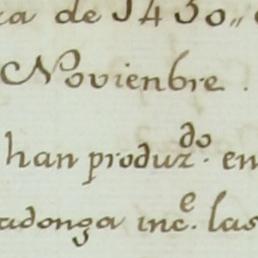 de 1430,,
Novienbre.
han produz.do en
adonga inc.e las